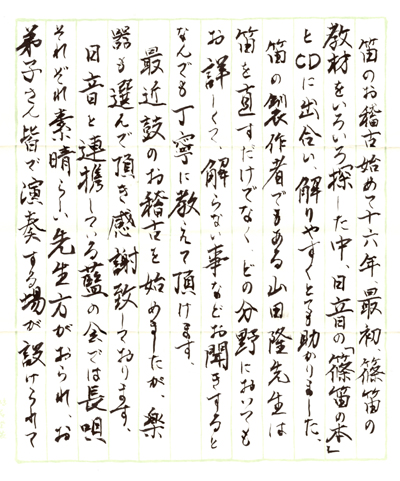 笛のお稽古始めて十六年、最初、篠笛の
教材をいろいろ探した中、日音の「篠笛の本」
とCDに出合い、解りやすくとても助かりました。
笛の製作者でもある山田隆先生は
笛を直すだけでなく、どの分野においても
お詳しくて、解らない事などお聞きすると
なんでも丁寧に教えて頂けます。
最近鼓のお稽古を始めましたが、楽
器も選んで頂き感謝致しております。
日音と連携している藍の会では長唄
それぞれ素晴らしい先生方がおられ、お
弟子さん皆で演奏する場が設けられて